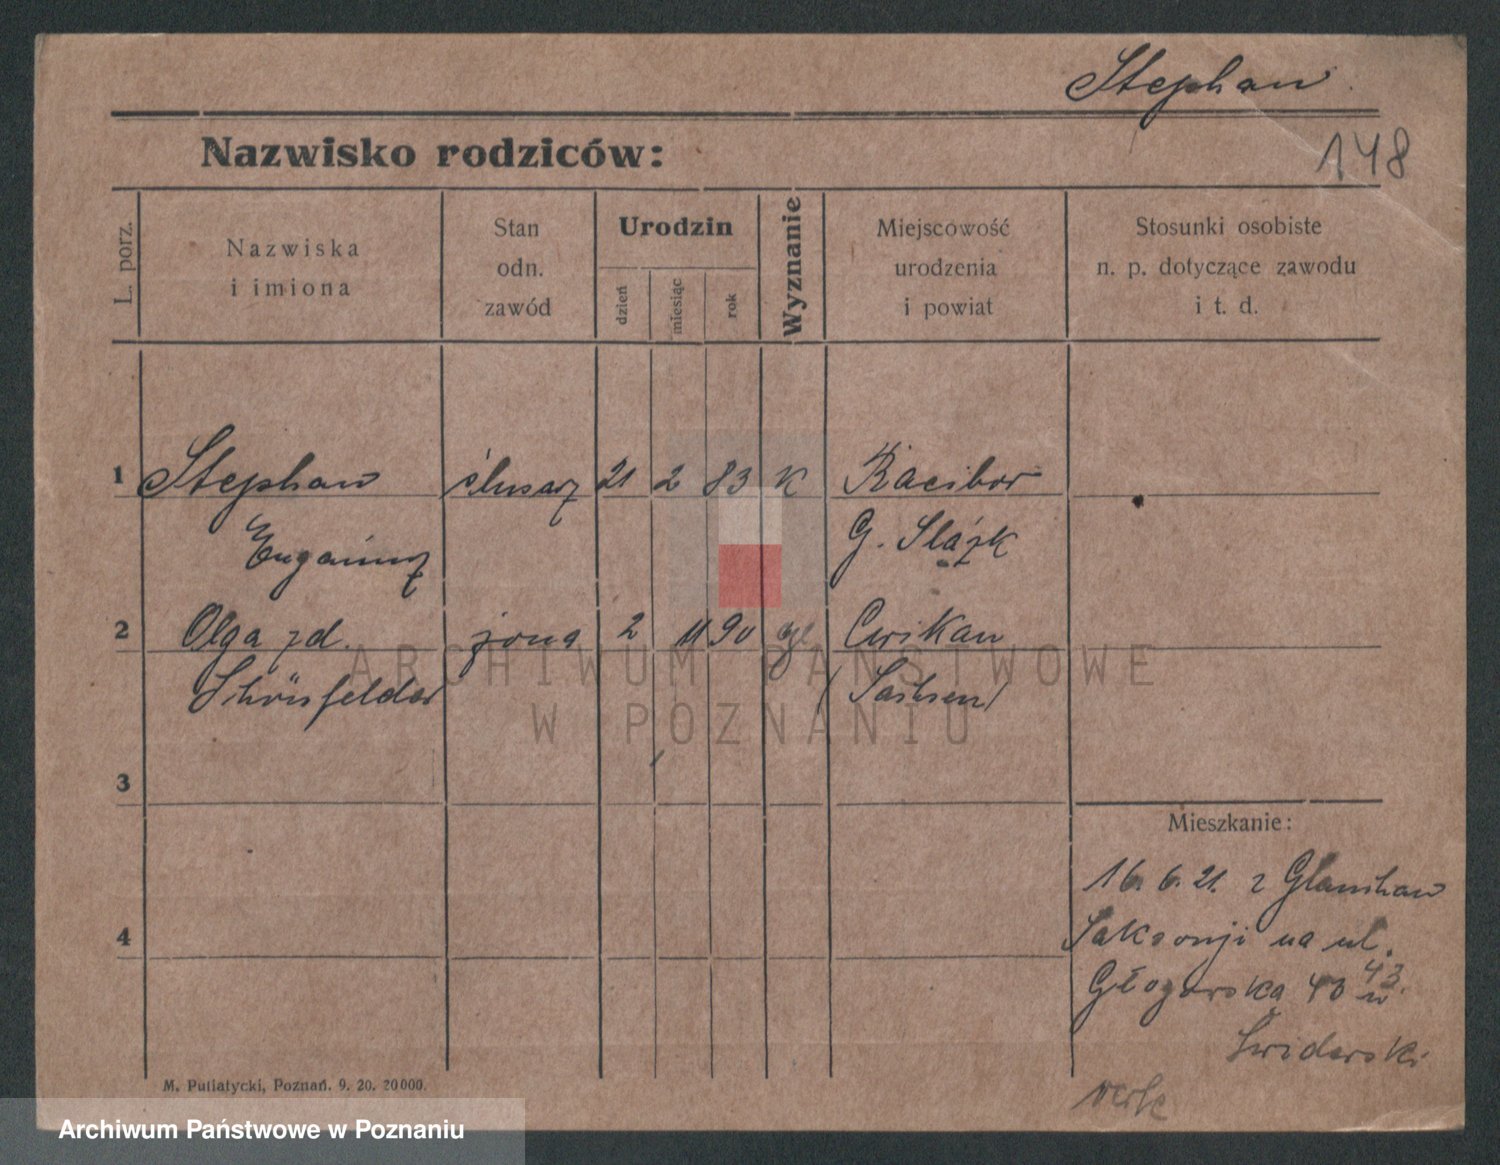 Stephan
Nazwisko rodziców:
148
L. porz.
Nazwiska
i imiona
Stan
odn.
zawód
Urodzin
dzień
miesiąc
rok
Wyznanie
Miejscowość
urodzenia
i powiat
Stosunki osobiste
n. p. dotyczące zawodu
i t. d.
1 Stephan ślusarz 21 2 83 K Racibor
G. Śląsk
2 Olga zd. żona 2 11 90 Cwikau
Schönfelder (Sachsen)
3
Mieszkanie:
16. 6. 21. z Glauchau
4 Saksonji na ul.
Głogowska 43
43
Świderski
M. Putiatycki, Poznań. 9. 20. 20000.
ARCHIWUM PAŃSTWOWE
W POZNANIU
Archiwum Państwowe w Poznaniu